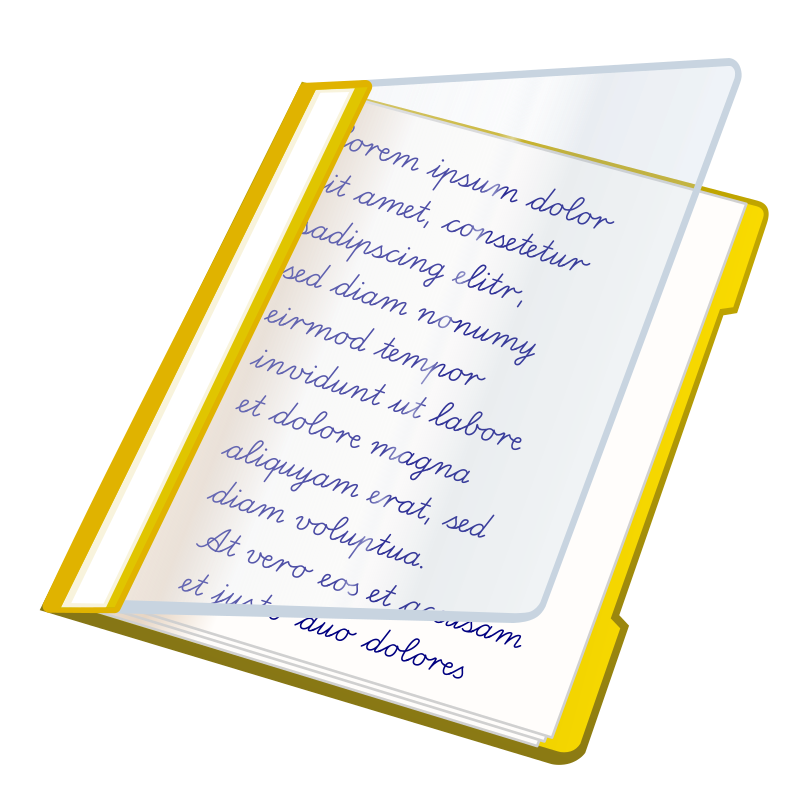 Lorem ipsum dolor
sit amet, consetetur
sadipscing elitr,
sed diam nonumy
eirmod tempor
invidunt ut labore
et dolore magna
aliquyam erat, sed
diam voluptua.
At vero eos et accusam
et justo duo dolores